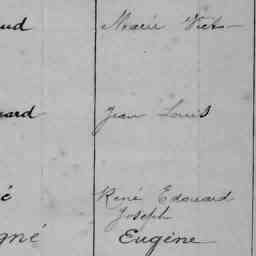 ud Marie Vict
ard Jean Louis
é René Edouard
Joseph
gné Eugène